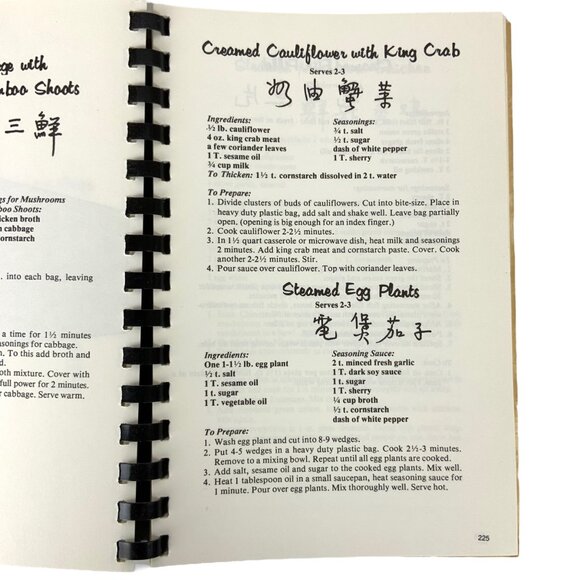 ge with
mboo Shoots
三鮮
gs for Mushrooms
boo Shoots:
cken broth
n cabbage
cornstarch
. into each bag, leaving
a time for 1½ minutes
asonings for cabbage.
n. To this add broth and
oth mixture. Cover with
full power for 2 minutes.
r cabbage. Serve warm.
Creamed Cauliflower with King Crab
Serves 2-3
奶油蟹菜
Ingredients:
½ lb. cauliflower
4 oz. king crab meat
a few coriander leaves
1 T. sesame oil
¾ cup milk
Seasonings:
¾ t. salt
½ t. sugar
dash of white pepper
1 T. sherry
To Thicken: 1½ t. cornstarch dissolved in 2 t. water
To Prepare:
1. Divide clusters of buds of cauliflowers. Cut into bite-size. Place in
heavy duty plastic bag, add salt and shake well. Leave bag partially
open, (opening is big enough for an index finger.)
2. Cook cauliflower 2-2½ minutes.
3. In 1½ quart casserole or microwave dish, heat milk and seasonings
2 minutes. Add king crab meat and cornstarch paste. Cover. Cook
another 2-2½ minutes. Stir.
4. Pour sauce over cauliflower. Top with coriander leaves.
Steamed Egg Plants
Serves 2-3
電煲茄子
Ingredients:
One 1-1½ lb. egg plant
½ t. salt
1 T. sesame oil
1 t. sugar
1 T. vegetable oil
Seasoning Sauce:
2 t. minced fresh garlic
1 T. dark soy sauce
1 t. sugar
1 T. sherry
¼ cup broth
½ t. cornstarch
dash of white pepper
To Prepare:
1. Wash egg plant and cut into 8-9 wedges.
2. Put 4-5 wedges in a heavy duty plastic bag. Cook 2½-3 minutes.
Remove to a mixing bowl. Repeat until all egg plants are cooked.
3. Add salt, sesame oil and sugar to the cooked egg plants. Mix well.
4. Heat 1 tablespoon oil in a small saucepan, heat seasoning sauce for
1 minute. Pour over egg plants. Mix thoroughly well. Serve hot.
225